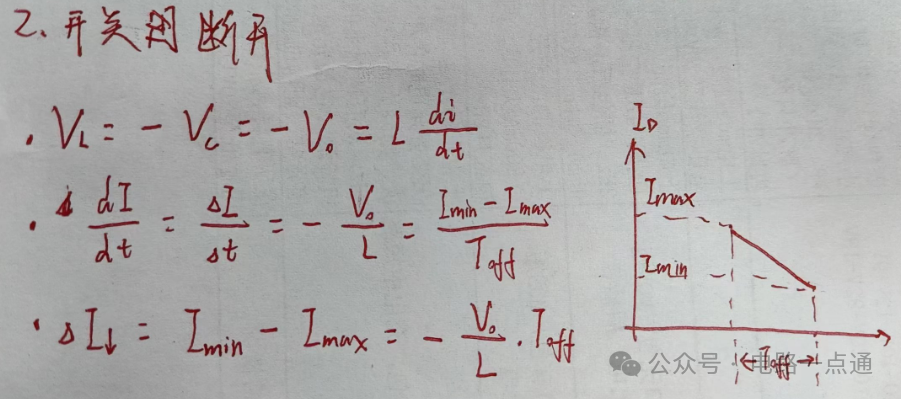 2. 开关闭断开
· V_L = - V_c = - V_o = L di/dt
· dI/dt = ΔI/Δt = - V_o/L = (I_min - I_max)/T_off
· ΔI↓ = I_min - I_max = - V_o/L · T_off
I_D
I_max
I_min
T_off
公众号·电路一点通